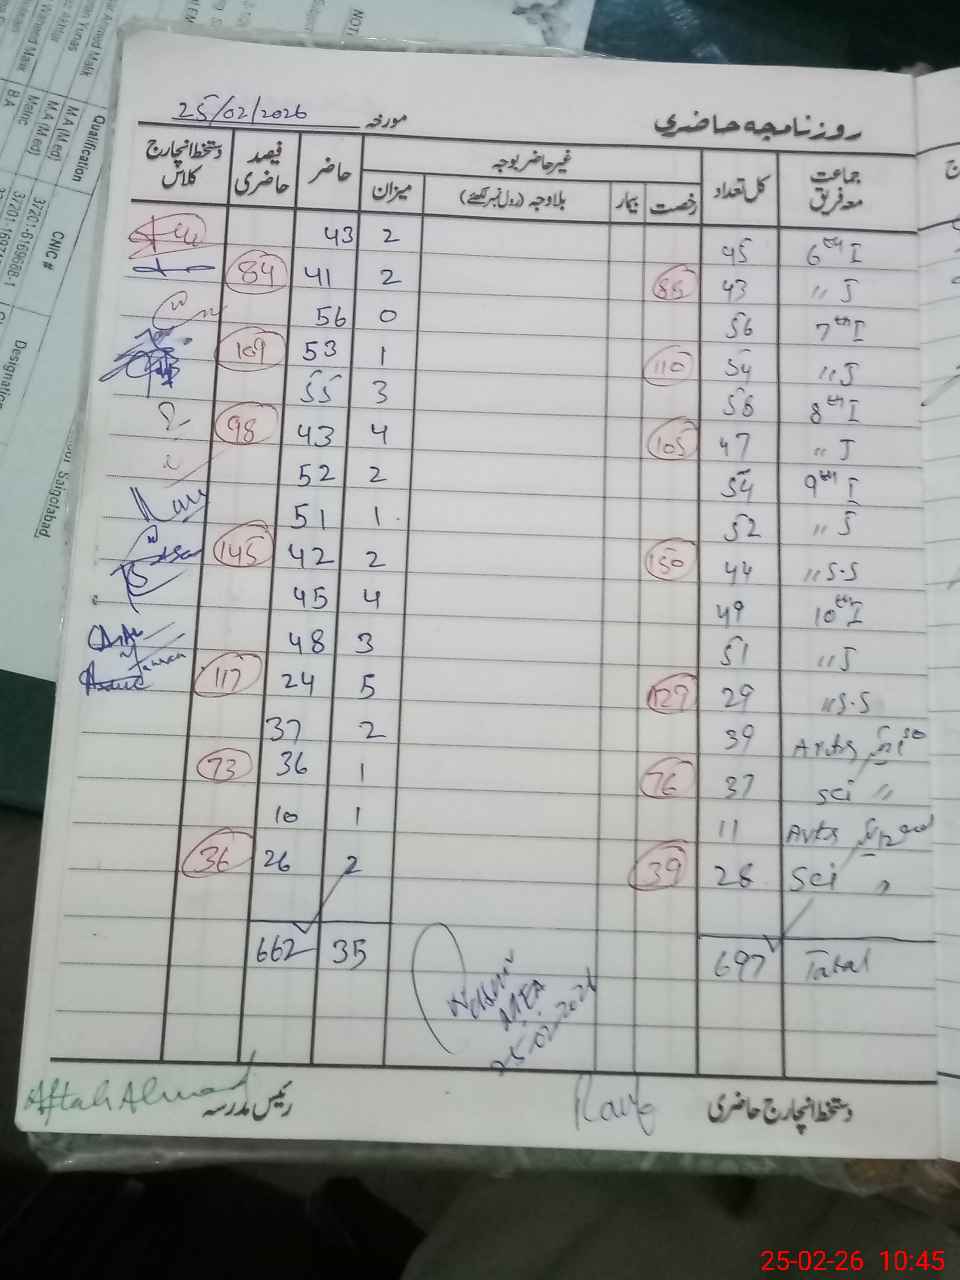 روزنامچہ حاضری مورخہ 25/02/2026
جماعت معہ فریق کل تعداد غیر حاضر بوجہ حاضر فیصد حاضری دستخط انچارج کلاس
رخصت بیمار بلاوجہ (رول نمبر لکھئے) میزان
6th I 45 2 43
" J 43 85 2 41 84
7th I 56 0 56
" J 54 110 1 53 109
8th I 58 3 55
" J 47 105 4 43 98
9th I 54 2 52
" J 52 1 51
" S.S 44 150 2 42 145
10th I 49 4 45
" J 51 3 48
" S.S 29 129 5 24 117
Arts 39 2 37
Sci " 37 76 1 36 73
Arts 11 1 10
Sci " 28 39 2 26 36
Total 697 35 662
25.02.2026
دستخط انچارج حاضری Rauf رئیس مدرسہ Aftab Ahmad
Qualification
CNIC #
Designation
M.A (M.ed)
M.A (M.ed)
Matric
B A
37201-6169688-1
Saigolabad,
25-02-26 10:45